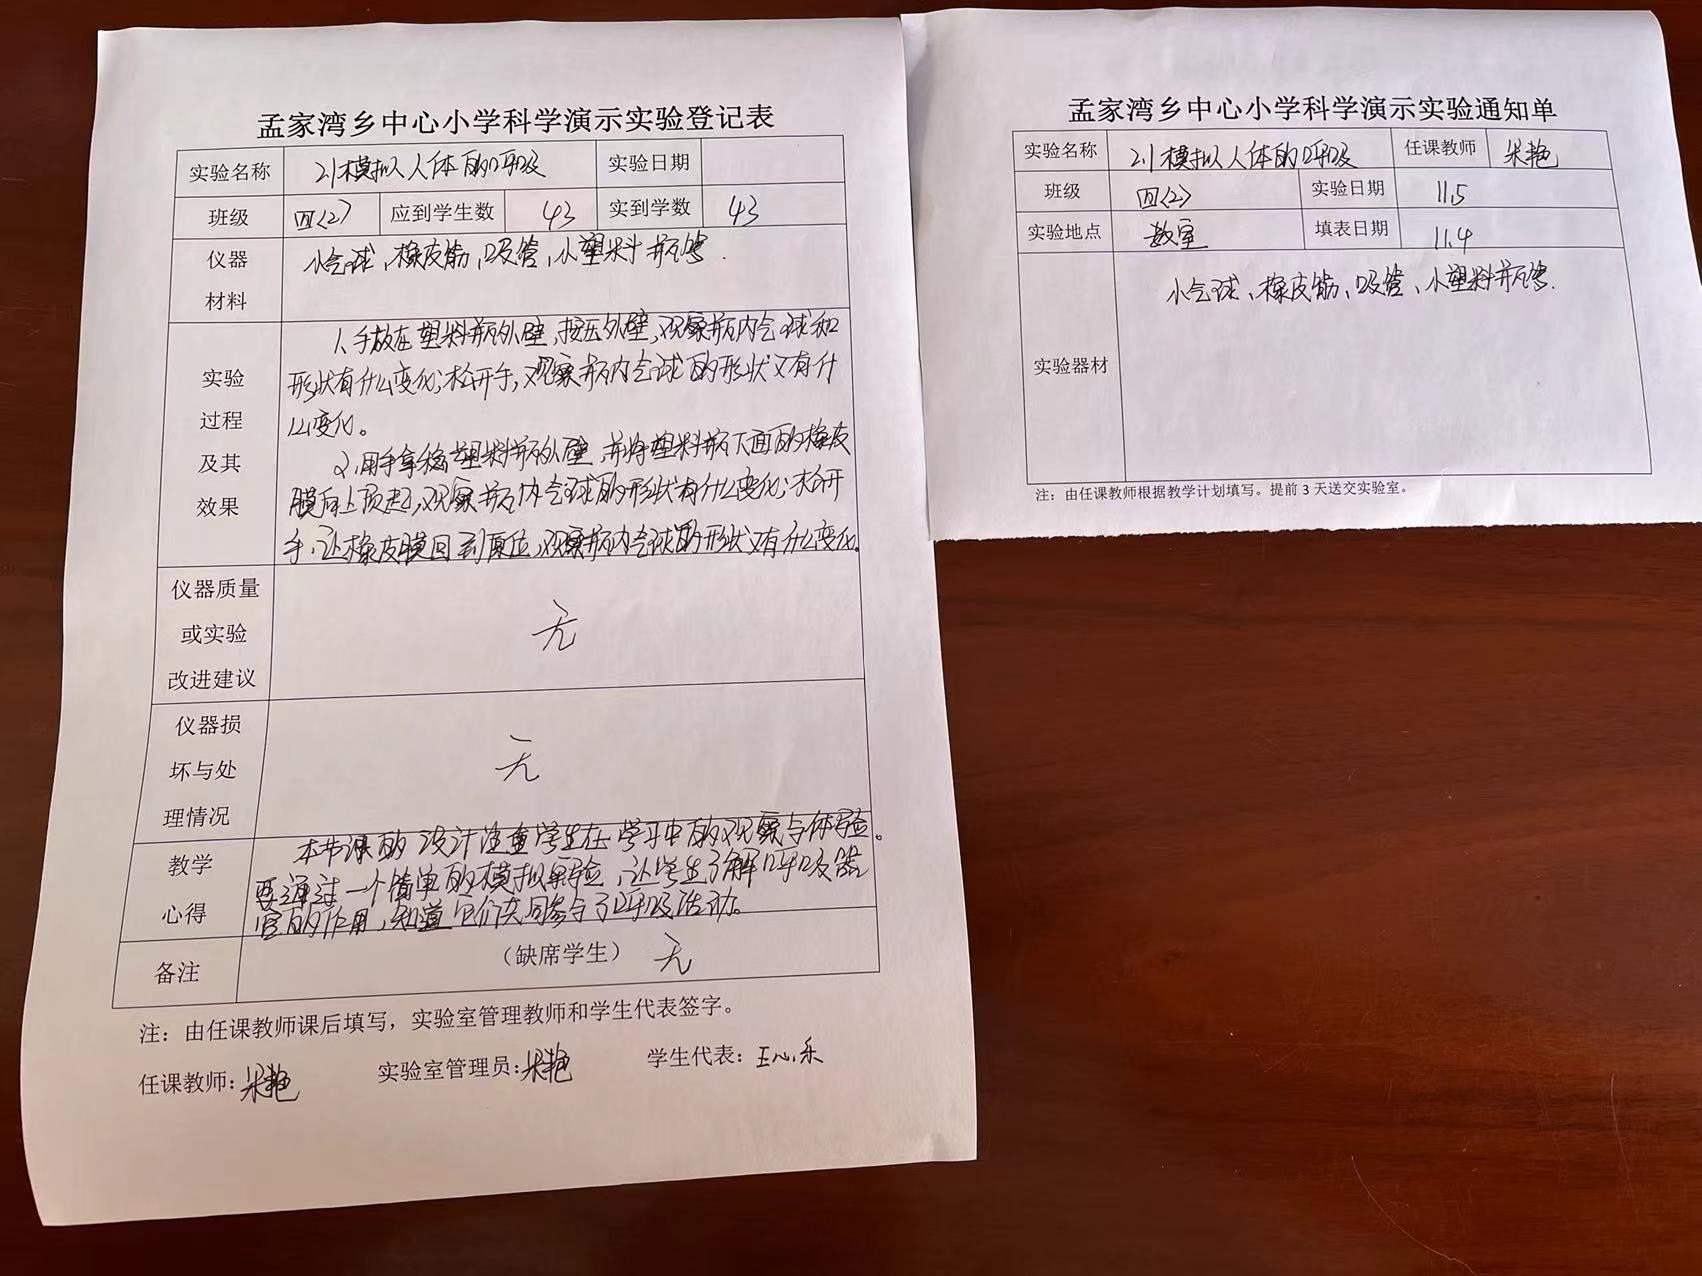 孟家湾乡中心小学科学演示实验登记表
实验名称 2.1模拟人体的呼吸 实验日期
班级 四(2) 应到学生数 43 实到学数 43
仪器
材料
小气球、橡皮筋、吸管、小塑料瓶等.
实验
过程
及其
效果
1、手放在塑料瓶外壁,按压外壁,观察瓶内气球和
形状有什么变化;松开手,观察瓶内气球的形状又有什
么变化。
2、用手拿稳塑料瓶外壁,并将塑料瓶下面的橡皮
膜向上顶起,观察瓶内气球的形状有什么变化;松开
手,让橡皮膜回到原位,观察瓶内气球的形状又有什么变化.
仪器质量
或实验
改进建议
无
仪器损
坏与处
理情况
无
教学
心得
本节课的设计注重学生在学习中的观察与体验。
要通过一个简单的模拟实验,让学生了解呼吸器
官的作用,知道它们共同参与了呼吸活动。
备注 (缺席学生) 无
注:由任课教师课后填写,实验室管理教师和学生代表签字。
任课教师: 实验室管理员: 学生代表:王心乐
孟家湾乡中心小学科学演示实验通知单
实验名称 2.1模拟人体的呼吸 任课教师
班级 四(2) 实验日期 11.5
实验地点 教室 填表日期 11.4
实验器材
小气球、橡皮筋、吸管、小塑料瓶等.
注:由任课教师根据教学计划填写。提前 3 天送交实验室。